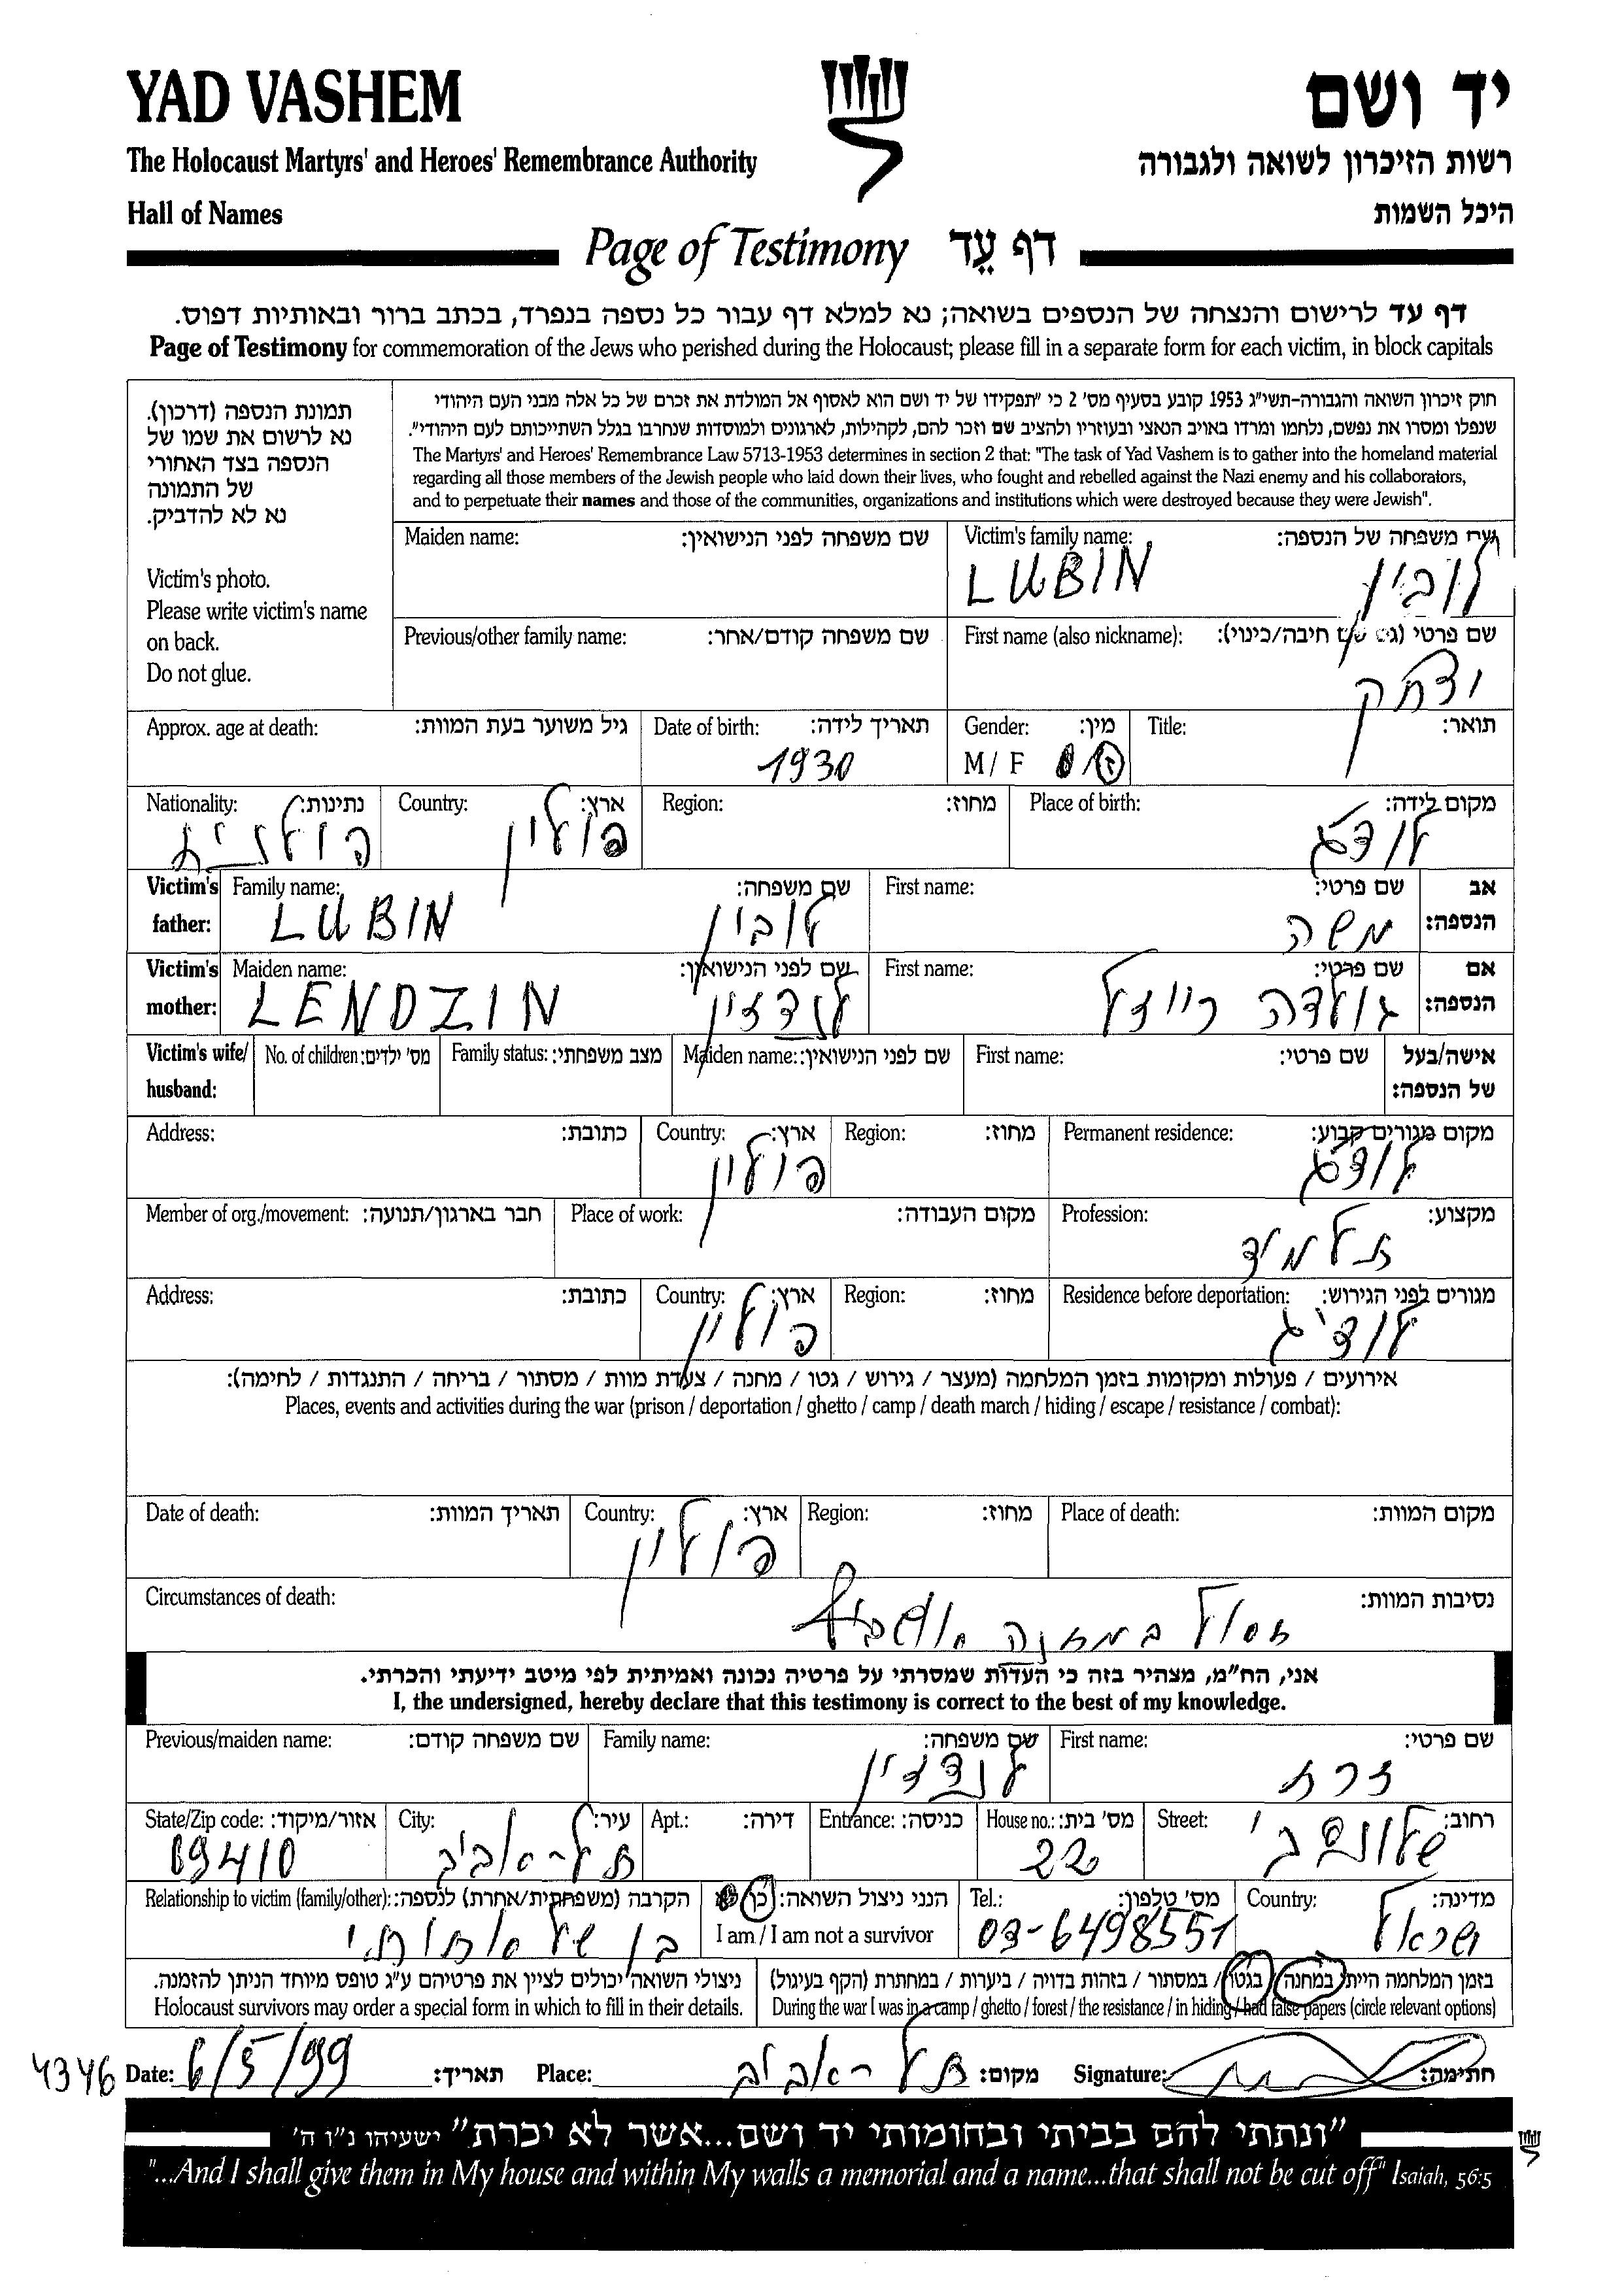 YAD VASHEM
יד ושם
The Holocaust Martyrs' and Heroes' Remembrance Authority
רשות הזיכרון לשואה ולגבורה
Hall of Names
היכל השמות
Page of Testimony דף עֵד
דף עד לרישום והנצחה של הנספים בשואה; נא למלא דף עבור כל נספה בנפרד, בכתב ברור ובאותיות דפוס.
Page of Testimony for commemoration of the Jews who perished during the Holocaust; please fill in a separate form for each victim, in block capitals
תמונת הנספה (דרכון).
נא לרשום את שמו של
הנספה בצד האחורי
של התמונה
נא לא להדביק.
Victim's photo.
Please write victim's name
on back.
Do not glue.
חוק זיכרון השואה והגבורה-תשי"ג 1953 קובע בסעיף מס' 2 כי "תפקידו של יד ושם הוא לאסוף אל המולדת את זכרם של כל אלה מבני העם היהודי
שנפלו ומסרו את נפשם, נלחמו ומרדו באויב הנאצי ובעוזריו ולהציב שם וזכר להם, לקהילות, לארגונים ולמוסדות שנחרבו בגלל השתייכותם לעם היהודי".
The Martyrs' and Heroes' Remembrance Law 5713-1953 determines in section 2 that: "The task of Yad Vashem is to gather into the homeland material
regarding all those members of the Jewish people who laid down their lives, who fought and rebelled against the Nazi enemy and his collaborators,
and to perpetuate their names and those of the communities, organizations and institutions which were destroyed because they were Jewish".
Maiden name: שם משפחה לפני הנישואין: Victim's family name: שם משפחה של הנספה:
LUBIN לובין
Previous/other family name: שם משפחה קודם/אחר: First name (also nickname): שם פרטי (גם שם חיבה/כינוי):
יצחק
Approx. age at death: גיל משוער בעת המוות: Date of birth: תאריך לידה: Gender: מין: Title: תואר:
1930 M / F ז
Nationality: נתינות: Country: ארץ: Region: מחוז: Place of birth: מקום לידה:
פולנית פולין לודג
Victim's Family name: שם משפחה: First name: שם פרטי: אב
father: LUBIN לובין משה הנספה:
Victim's Maiden name: שם לפני הנישואין: First name: שם פרטי: אם
mother: LENDZIN לנדזין גולדה רייזל הנספה:
Victim's wife/ No. of children: מס' ילדים: Family status: מצב משפחתי: Maiden name: שם לפני הנישואין: First name: שם פרטי: אישה/בעל
husband: של הנספה:
Address: כתובת: Country: ארץ: Region: מחוז: Permanent residence: מקום מגורים קבוע:
פולין לודג
Member of org./movement: חבר בארגון/תנועה: Place of work: מקום העבודה: Profession: מקצוע:
תלמיד
Address: כתובת: Country: ארץ: Region: מחוז: Residence before deportation: מגורים לפני הגירוש:
פולין לודג'
אירועים / פעולות ומקומות בזמן המלחמה (מעצר / גירוש / גטו / מחנה / צעדת מוות / מסתור / בריחה / התנגדות / לחימה):
Places, events and activities during the war (prison / deportation / ghetto / camp / death march / hiding / escape / resistance / combat):
Date of death: תאריך המוות: Country: ארץ: Region: מחוז: Place of death: מקום המוות:
פולין
Circumstances of death: נסיבות המוות:
חוסל במחנה
אני, הח"מ, מצהיר בזה כי העדות שמסרתי על פרטיה נכונה ואמיתית לפי מיטב ידיעתי והכרתי.
I, the undersigned, hereby declare that this testimony is correct to the best of my knowledge.
Previous/maiden name: שם משפחה קודם: Family name: שם משפחה: First name: שם פרטי:
לנדזין זרח
State/Zip code: אזור/מיקוד: City: עיר: Apt.: דירה: Entrance: כניסה: House no.: מס' בית: Street: רחוב:
69410 תל-אביב 22
Relationship to victim (family/other): הקרבה (משפחתית/אחרת) לנספה: הנני ניצול השואה: כן Tel.: מס' טלפון: Country: מדינה:
בן של אחותי I am / I am not a survivor 03-6498551 ישראל
ניצולי השואה יכולים לציין את פרטיהם ע"ג טופס מיוחד הניתן להזמנה.
Holocaust survivors may order a special form in which to fill in their details.
בזמן המלחמה הייתי במחנה / בגטו / במסתור / בזהות בדויה / ביערות / במחתרת (הקף בעיגול)
During the war I was in a camp / ghetto / forest / the resistance / in hiding / had false papers (circle relevant options)
4346 Date: 6/5/99 תאריך: Place: תל-אביב מקום: Signature: חתימה:
"ונתתי להם בביתי ובחומותי יד ושם...אשר לא יכרת" ישעיהו נ"ו ה'
"...And I shall give them in My house and within My walls a memorial and a name...that shall not be cut off" Isaiah, 56:5